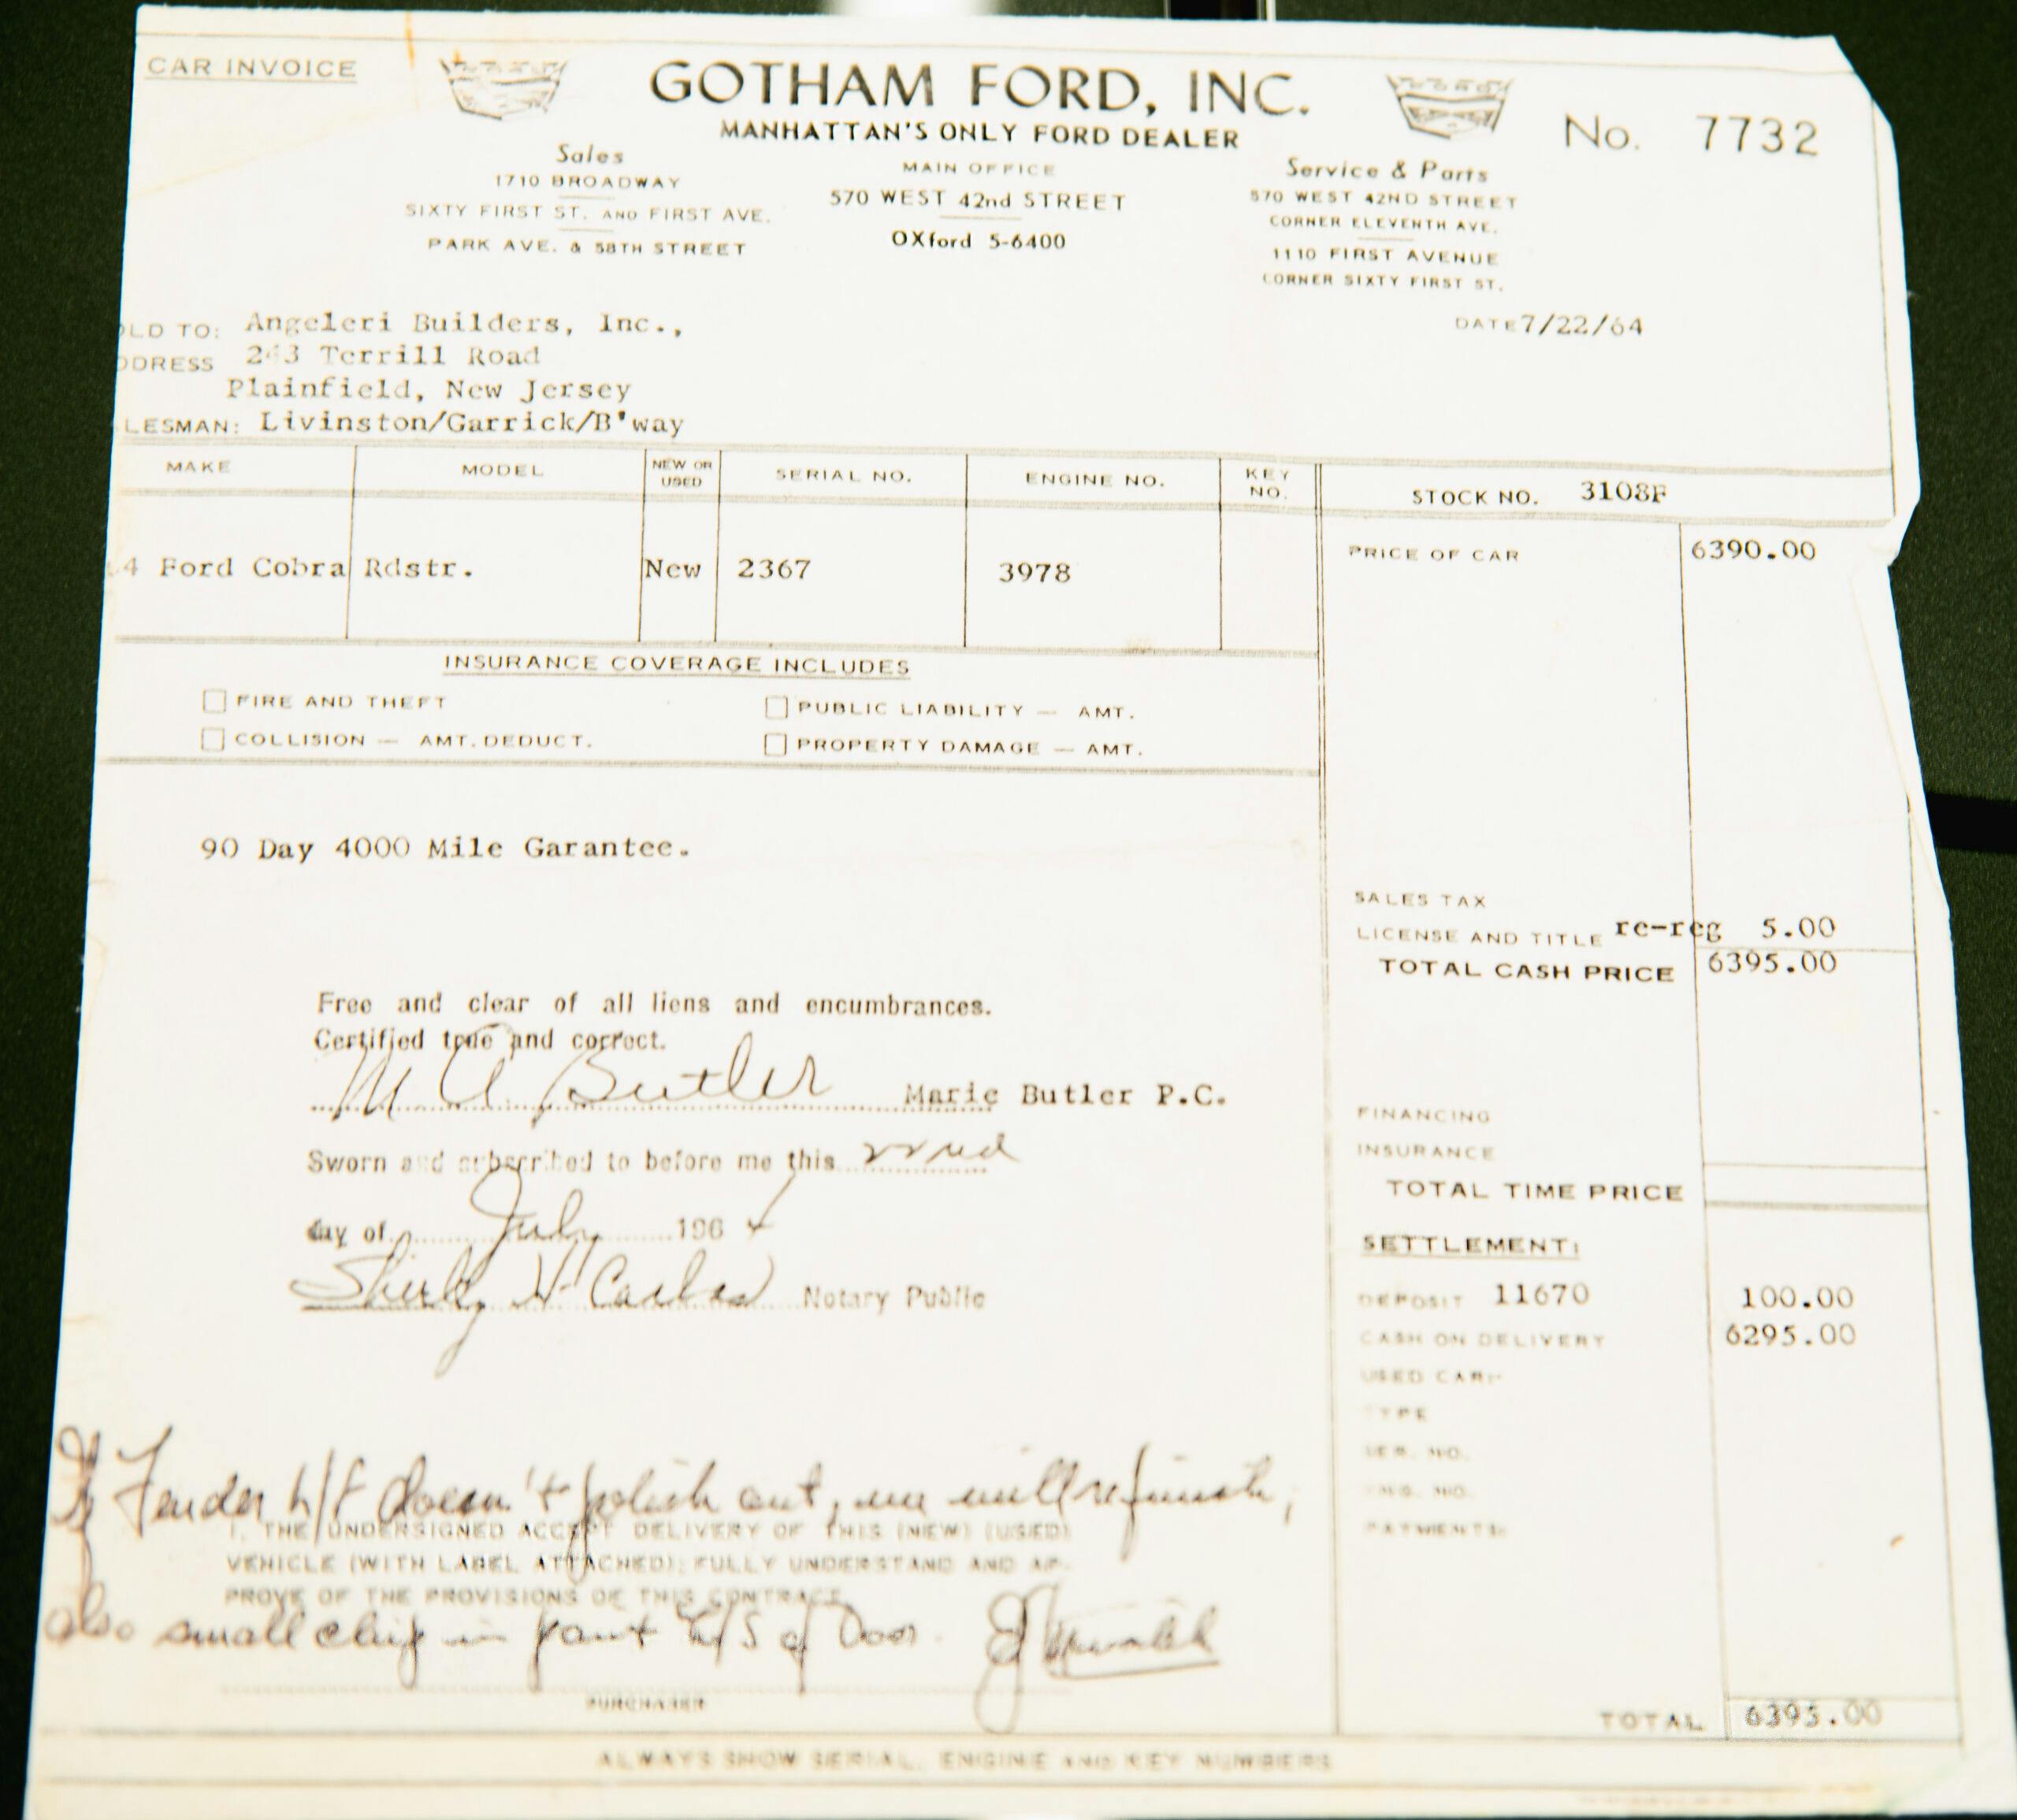 CAR INVOICE
GOTHAM FORD, INC.
MANHATTAN'S ONLY FORD DEALER
No. 7732
Sales
1710 BROADWAY
SIXTY FIRST ST. AND FIRST AVE.
PARK AVE. & 58TH STREET
MAIN OFFICE
570 WEST 42nd STREET
OXford 5-6400
Service & Parts
570 WEST 42ND STREET
CORNER ELEVENTH AVE.
1110 FIRST AVENUE
CORNER SIXTY FIRST ST.
DATE 7/22/64
OLD TO: Angeleri Builders, Inc.,
DDRESS 243 Terrill Road
Plainfield, New Jersey
LESMAN: Livinston/Garrick/B'way
MAKE MODEL NEW OR USED SERIAL NO. ENGINE NO. KEY NO. STOCK NO. 3108F
4 Ford Cobra Rdstr. New 2367 3978
PRICE OF CAR 6390.00
INSURANCE COVERAGE INCLUDES
FIRE AND THEFT PUBLIC LIABILITY — AMT.
COLLISION — AMT. DEDUCT. PROPERTY DAMAGE — AMT.
90 Day 4000 Mile Garantee.
SALES TAX
LICENSE AND TITLE re-reg 5.00
TOTAL CASH PRICE 6395.00
Free and clear of all liens and encumbrances.
Certified true and correct.
M A Butler Marie Butler P.C.
Sworn and subscribed to before me this 22nd
day of July 1964
Shirley H Notary Public
FINANCING
INSURANCE
TOTAL TIME PRICE
SETTLEMENT:
DEPOSIT 11670 100.00
CASH ON DELIVERY 6295.00
USED CAR:
TYPE
SER. NO.
ENG. NO.
PAYMENTS:
If Fender L/F doesn't polish out, we will refinish,
I, THE UNDERSIGNED ACCEPT DELIVERY OF THIS (NEW) (USED)
VEHICLE (WITH LABEL ATTACHED); FULLY UNDERSTAND AND AP-
PROVE OF THE PROVISIONS OF THIS CONTRACT
also small chip in paint L/S of Door.
PURCHASER
TOTAL 6395.00
ALWAYS SHOW SERIAL, ENGINE AND KEY NUMBERS